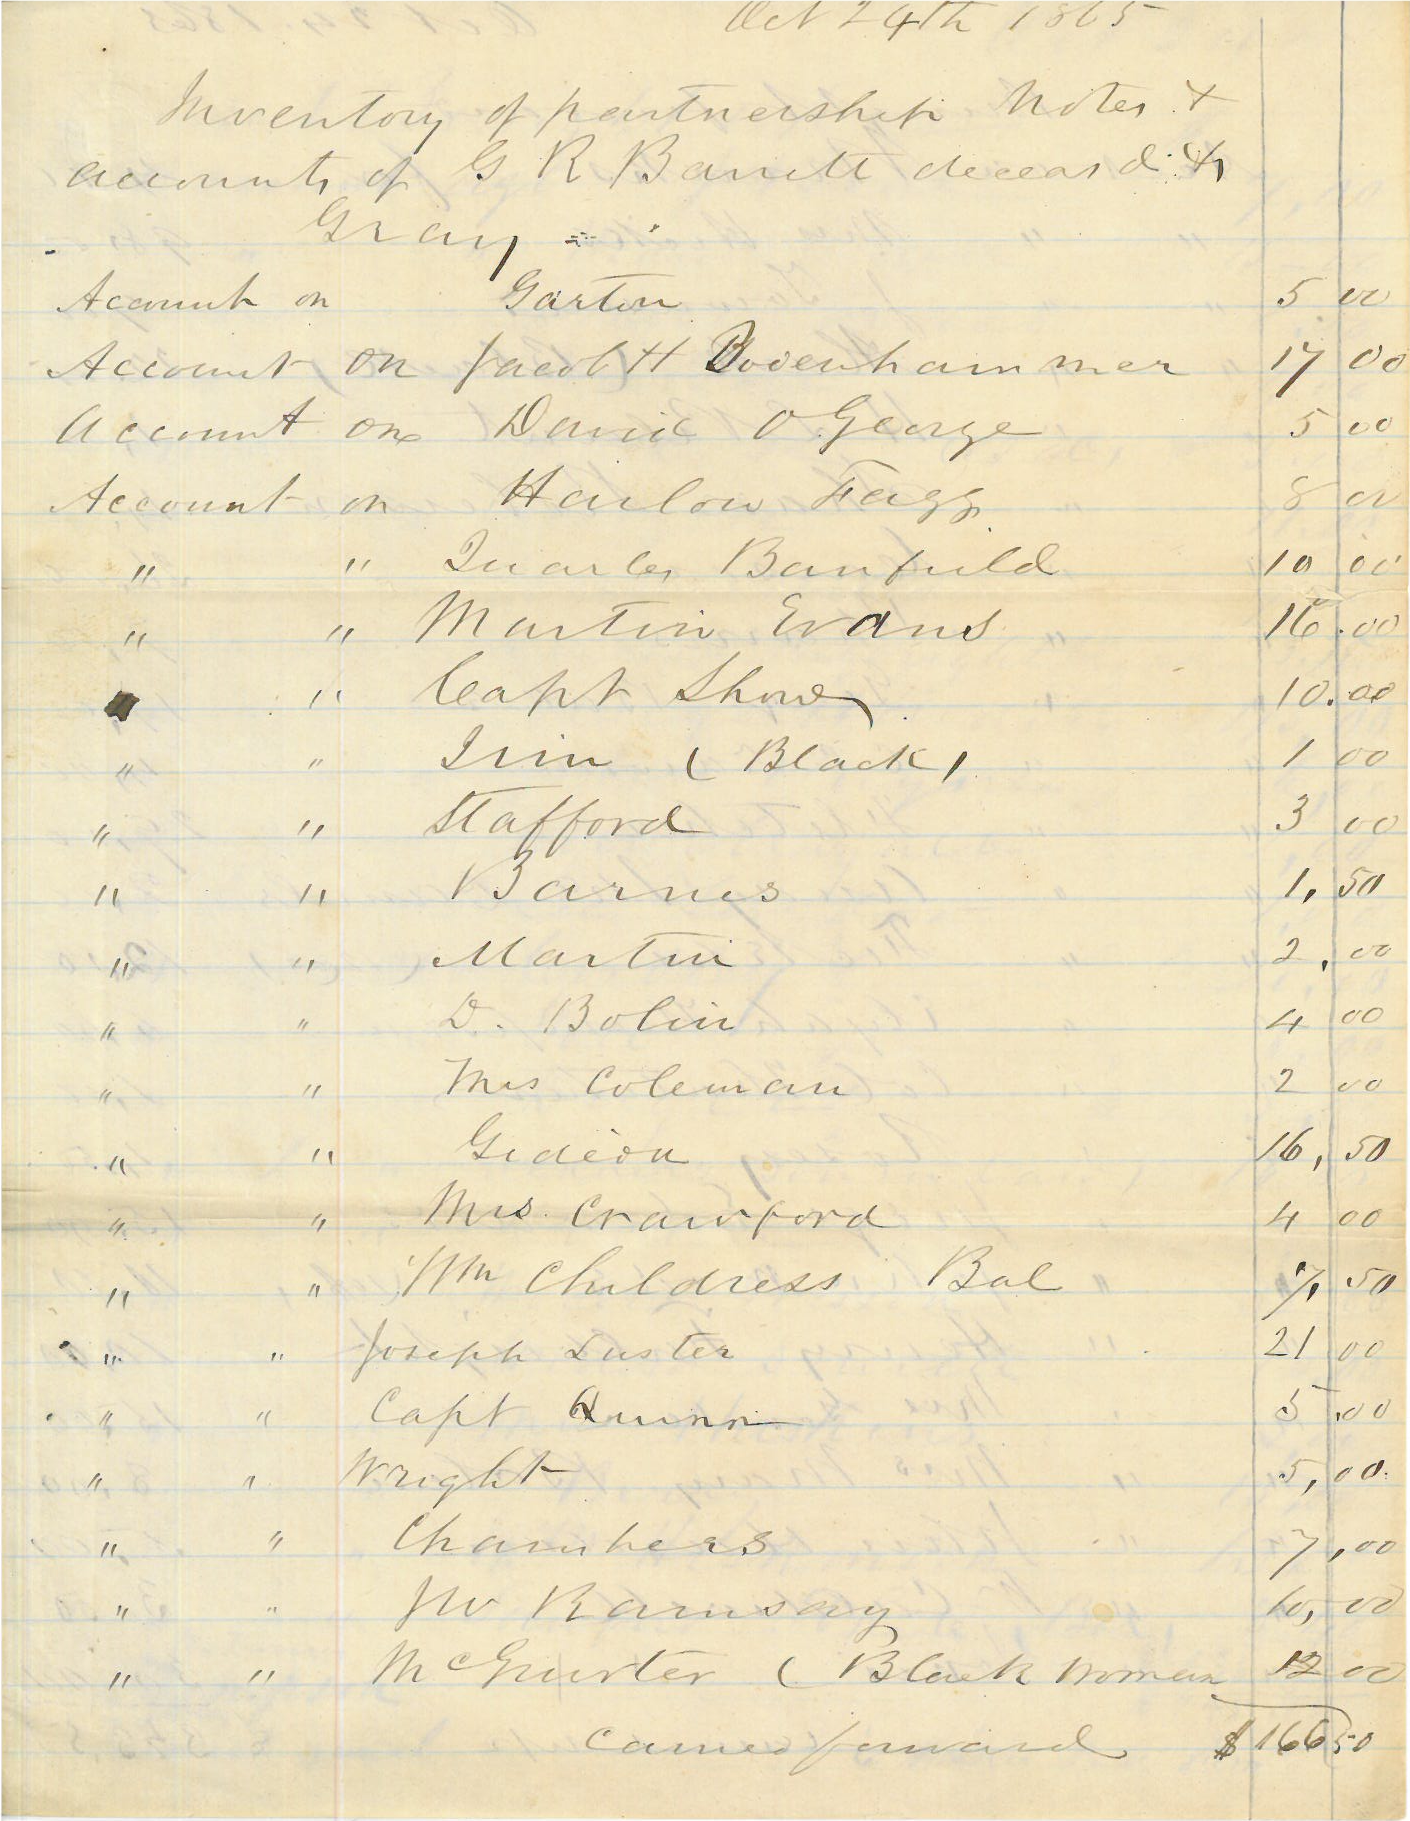 Oct 24th 1865
Inventory of partnership Notes &
accounts of G R Barrett deceasd &
Gray
Account on Garton 5 00
Account on Jacob H Bodenhammer 17 00
Account on David O George 5 00
Account on Harlow Fagg 8 00
" " Quarles Banfield 10 00
" " Martin Evans 16.00
" Capt Show 10.00
" " Irin ( Black ) 1 00
" " Stafford 3 00
" " Barnes 1,50
" " Martin 2,00
" " D. Bolin 4 00
" " Mrs Coleman 2 00
" " Gideon 16,50
" " Mrs. Crawford 4 00
" " Wm Childress Bal 7,50
" " Joseph Luster 21 00
" " Capt Quinn 5.00
" " Wright 5,00
" " Chambers 7,00
" " Jno Ramsay 10,00
" " (Black Woman 12 00
Carried forward $166 50